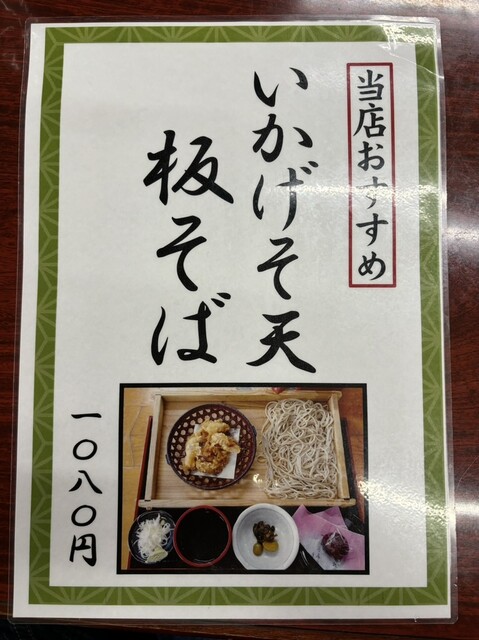 当店おすすめ
いかげそ天
板そば
一〇八〇円